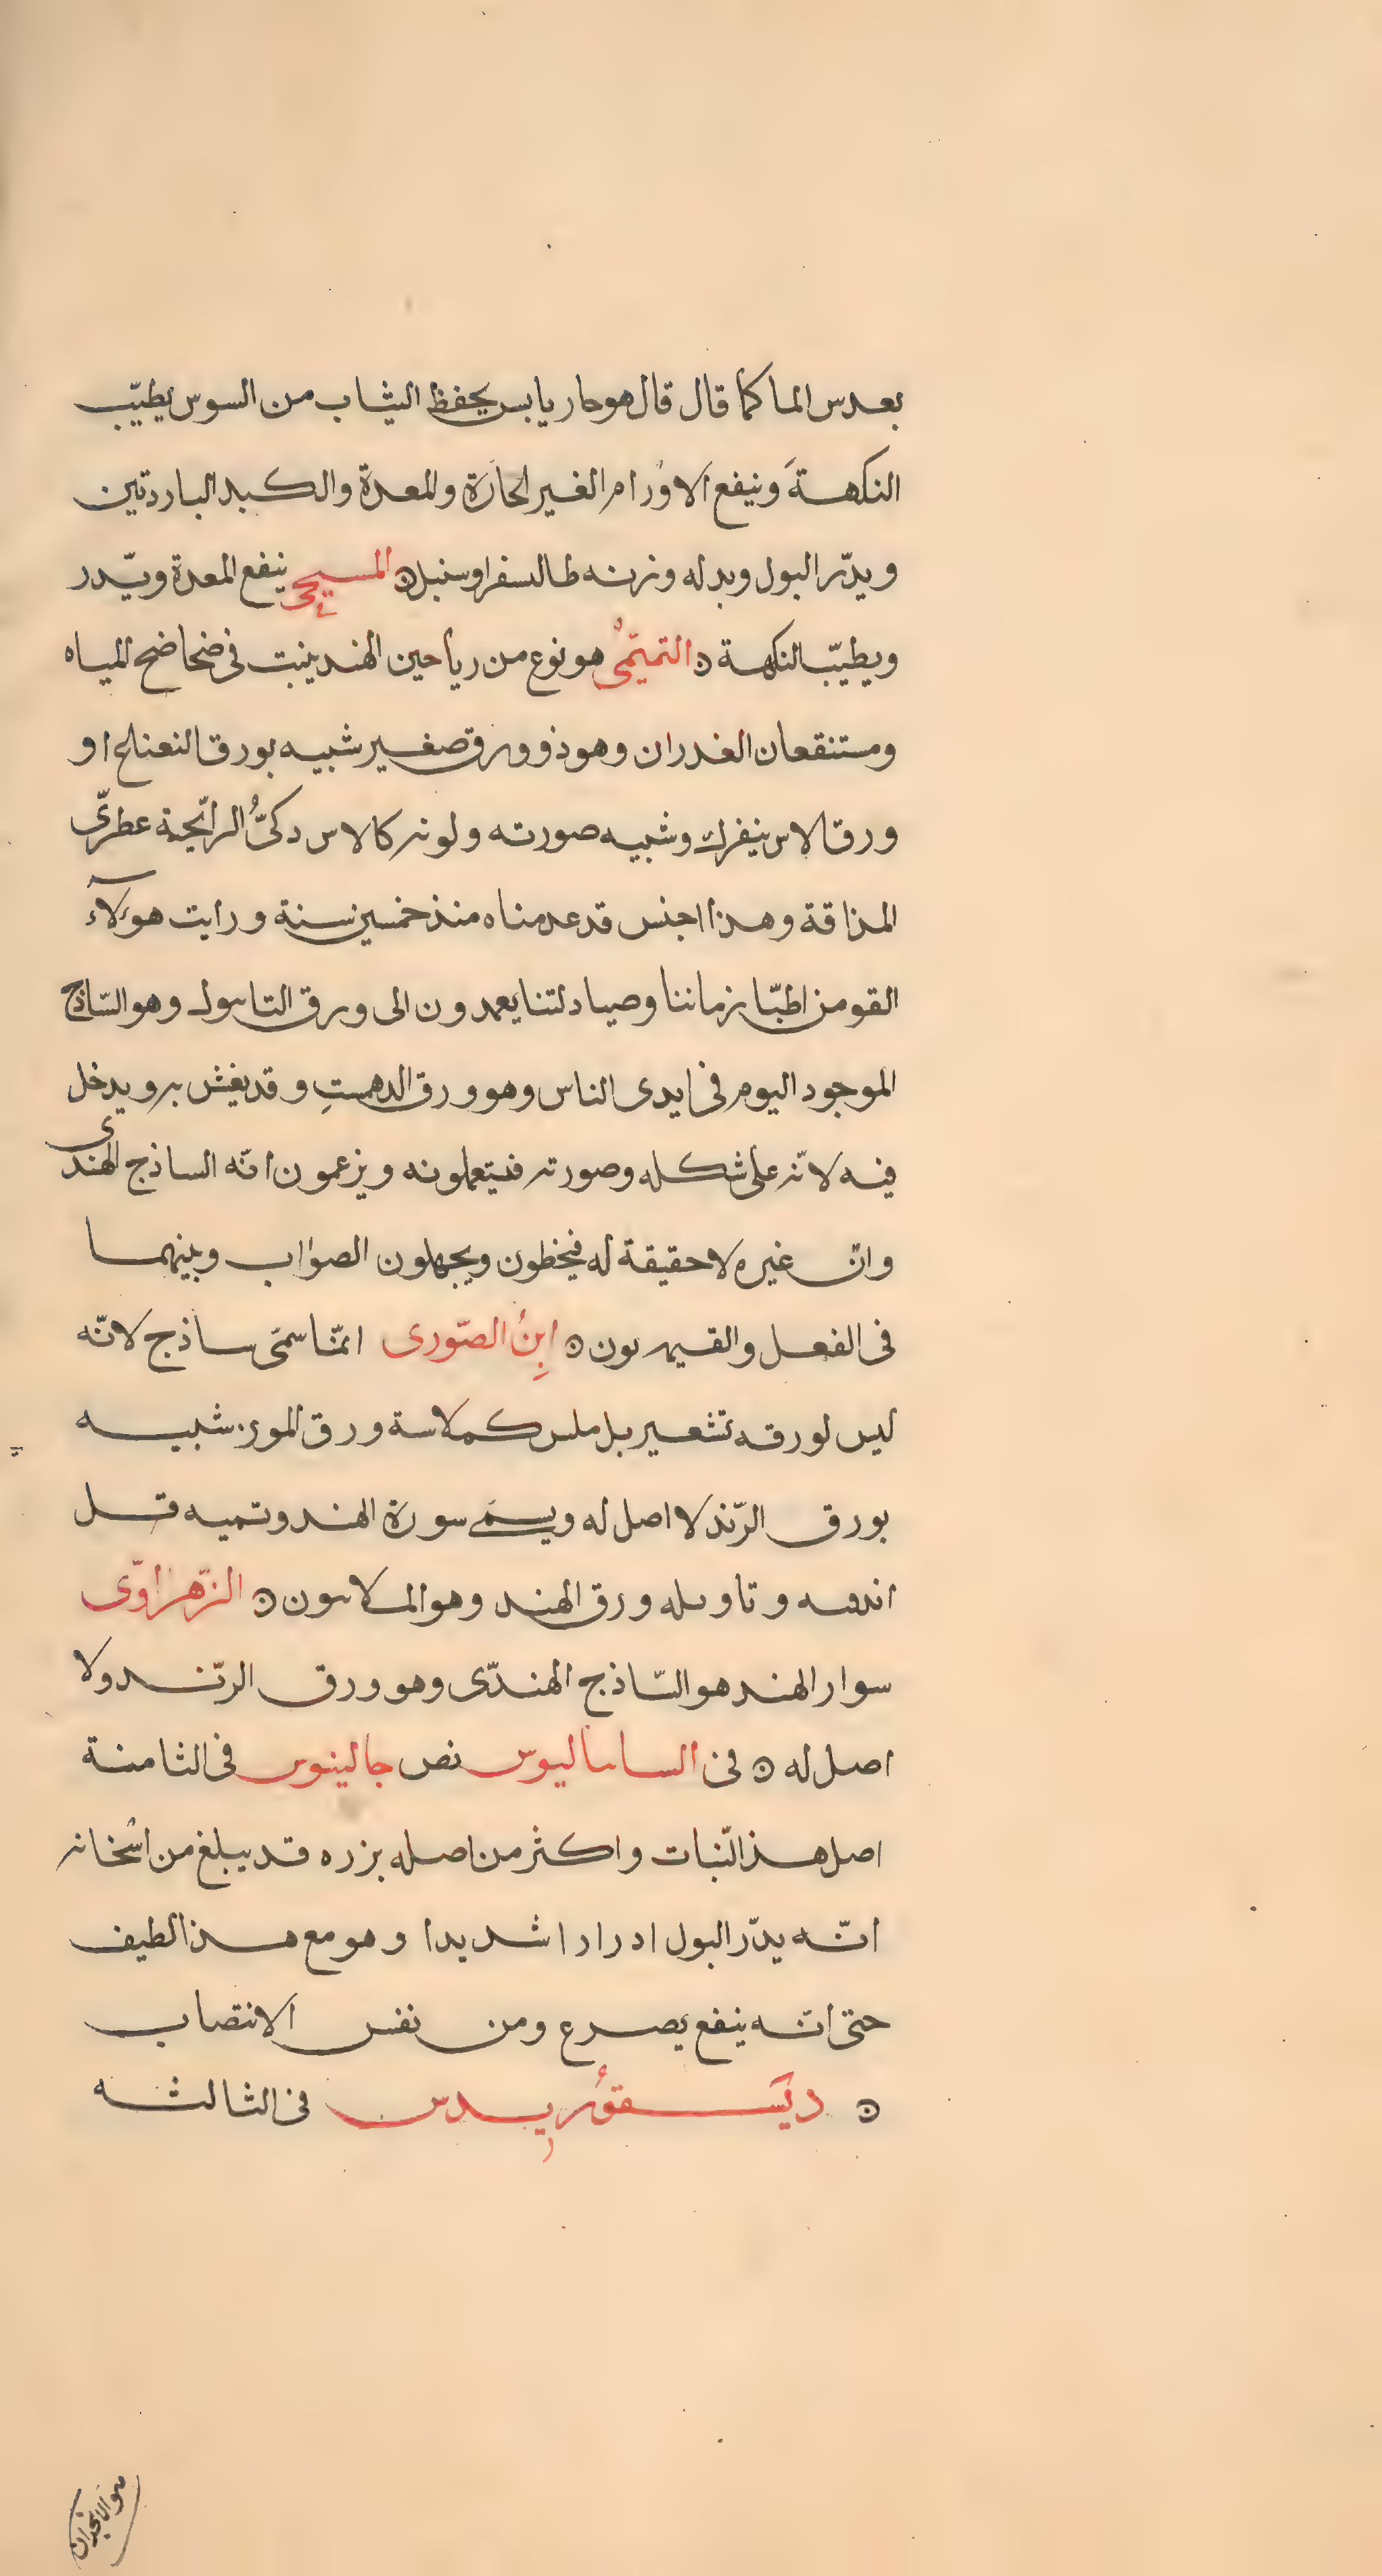 بعدس الما كما قال قال هو حار يابس يحفظ الثياب من السوس يطيّب
النكهة وينفع الاورام الغير الحارة والمعدة والكبد الباردتين
ويدّر البول وبدله وزنه طالسفر او سنبل ه المسيحى ينفع المعدة ويّدر
ويطيّب النكهة ه التميمى هو نوع من رياحين الهند ينبت فى ضحاضح المياه
ومستنقعان الغدران وهو ذو ورق صغير شبيه بورق النعناع او
ورق الاس ينفرك وشبيه صورته ولونه كالاس دكىُّ الرائحية عطرىّ
المذاقة وهذا اجنس قد عدمناه منذ خمسين سنة ورايت هؤلاء
القوم من اطبّا زماننا وصيادلتنا يعمدون الى ورق التاسول وهو السّاذج
الموجود اليوم فى ايدى الناس وهو ورق الدهمستِ وقد يغش به ويدخل
فيه لانّه على شكله وصورته فيتعملونه ويزعمون انّه الساذج الهندى
وانّ غيره لا حقيقة له فيخطون ويجهلون الصواب وبينهما
فى الفعل والقيمه بون ه ابنُ الصّورى انّما سمىّ ساذج لانّه
ليس لورقه تشعير بل ملس كملاسة ورق الموز شبيه
بورق الرّند لا اصل له ويسمى سورة الهند وتميه قل
اندقه وتاويله ورق الهند وهو الملاسون ه الزّهراوىّ
سوار الهند هو السّاذج الهندّى وهو ورق الرنّد ولا
اصل له ه فى الساساليوس نص جالينوس فى الثامنة
اصل هذ النّبات واكثر من اصله بزره قد يبلغ من اسْخانه
انّه يدّر البول ادرارا شديدا وهو مع هذا لطيف
حتى انّه ينفع يصرع ومن نفس الانتصاب
ه ديَسقوُريدس فى الثالثه
هو الانجدان